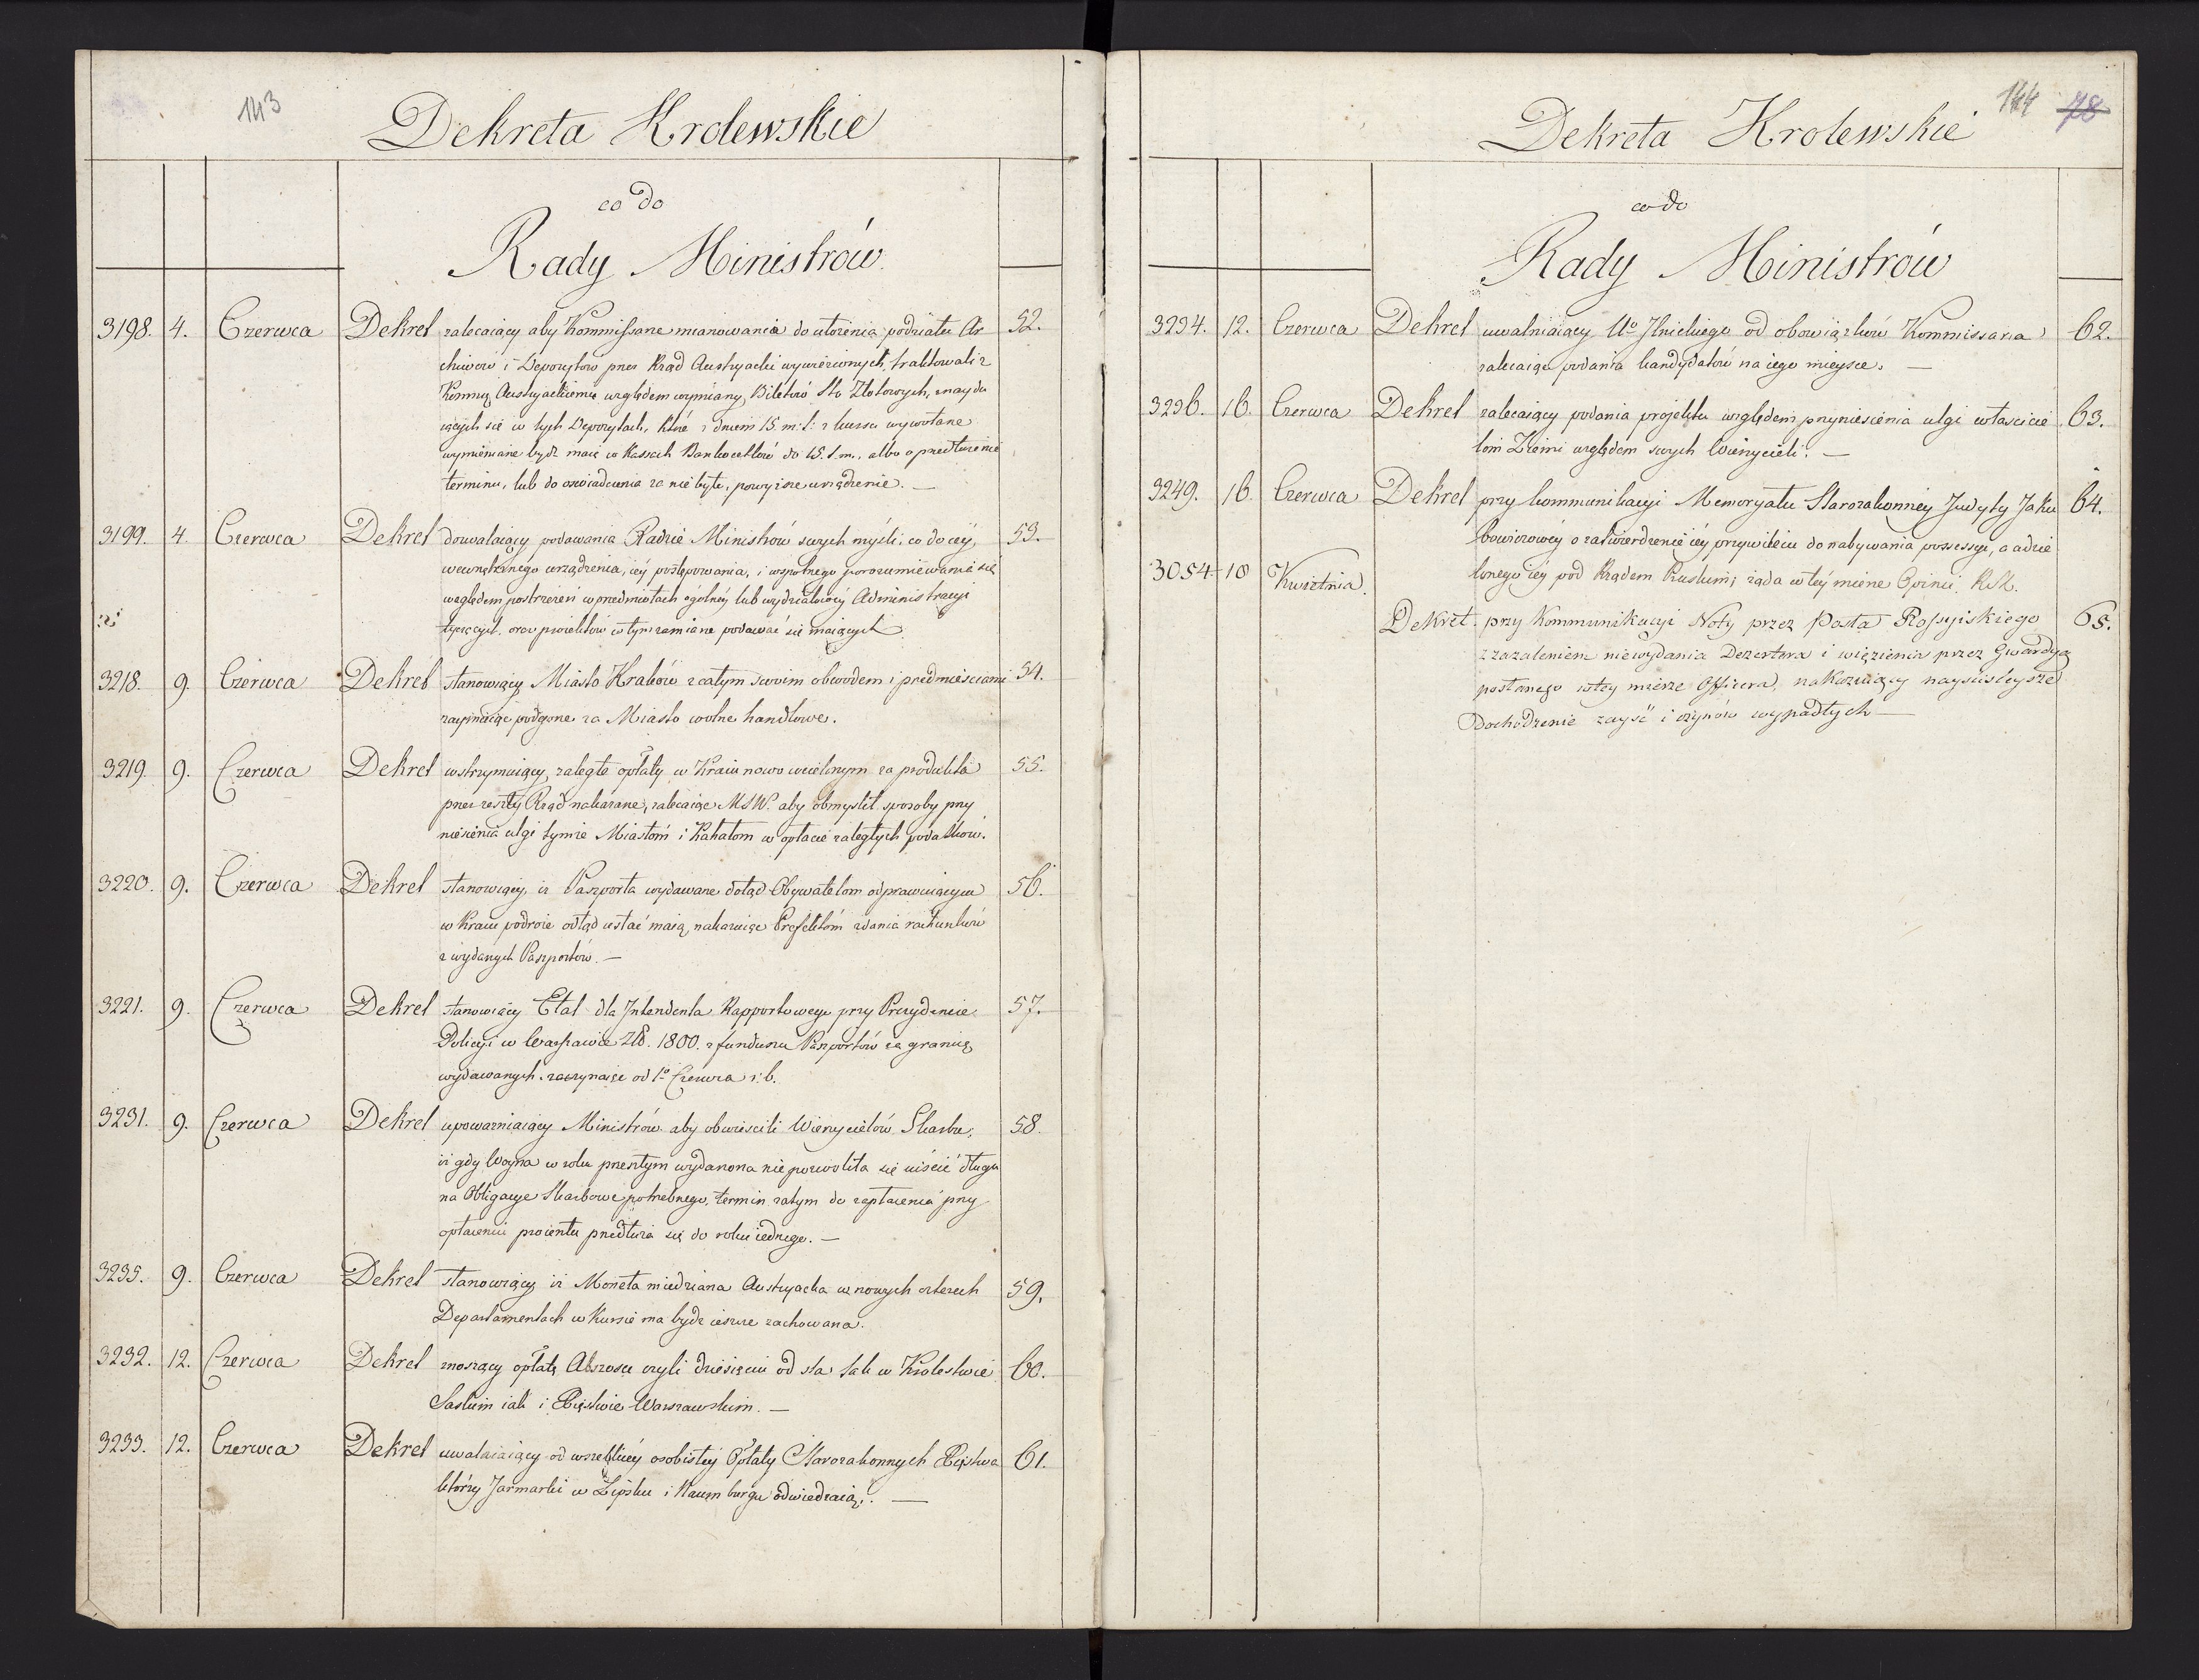 143
Dekreta Krolewskie
co do
Rady Ministrów
3198. 4. Czerwca Dekret zalecaiący aby Kommissarze mianowani do ułożenia podziału Ar 52.
chiwow i Depozytow przez Rząd Austryacki wywiezionych, traktowali z
Kommis. Austryackiemi względem wymiany Biletów Sto Złotowych, znaydu
iących się w tych Depozytach, które z dniem 15 m: t: z kursu wywołane
wymieniane bydź maią w Kassach Bankocetlów do 15. t. m., albo o przedłużenie
terminu, lub do oswiadczenia za nie byłe, powyższe urządzenie. —
3199. 4. Czerwca Dekret dozwalaiący podawania Radzie Ministrów swych myśli, co do iéy 53.
wewnętrznego urządzenia, iéy postępowania, i wspolnego porozumiewania się
względem postrzezeń w przedmiotach ogolnéy lub wydziałowéy Administracyi
tyczących, oraz proiektów w tym zamiarze podawać się maiących
3218. 9. Czerwca Dekret stanowiący Miasto Kraków z całym swoim obwodem i przedmiesciami 54.
zaymuiąc podgorze za Miasto wolne handlowe.
3219. 9. Czerwca Dekret wstrzymuiący zaległe opłaty w Kraiu nowo wcielonym za produkta 55.
przez zeszły Rząd nakazane, zalecaiąc MSW. aby obmyslił sposoby przy
niesienia ulgi tymże Miastom i Kahałom w opłacie zaległych podatkow.
3220. 9. Czerwca Dekret stanowiący iż Paszporta wydawane dotąd Obywatelom odprawuiącym 56.
w Kraiu podroże odtąd ustać maią, nakazuiąc Prefektóm zdania rachunków
z wydanych Paszportów. —
3221. 9. Czerwca Dekret stanowiący Etat dla Intendenta Rapportowego przy Prezydencie 57.
Policyi w Warszawie Złł. 1800. z funduszu Paszportów za granicę
wydawanych, zaczynaiąc od 1o Czerwca r: b.
3231. 9. Czerwca Dekret upowazniaiący Ministrów aby obwiescili Wierzycielów Skarbu, 58.
iż gdy Woyna w roku przeszłym wydarzona nie pozwoliła się uiścić długu
na Obligacye Skarbowe potrzebnego, termin zatym do zapłacenia przy
opłaceniu procentu przedłuża się do roku iednego. —
3235. 9. Czerwca Dekret stanowiący iż Moneta miedziana Austryacka w nowych czterech 59.
Departamentach w Kursie ma bydź ieszcze zachowana.
3232. 12. Czerwca Dekret znoszący opłatę Abszosu czyli dziesięciu od sta tak w Krolestwie 60.
Saskim iak i Xięstwie Warszawskim. —
3233. 12. Czerwca Dekret uwalniaiący od wszelkiéy osobistéy Opłaty Starozakonnych Xięstwa 61.
którzy Jarmarki w Lipsku i Naumburgu odwiedzaią. —
144 78
Dekreta Krolewskie
co do
Rady Ministrów
3234. 12. Czerwca Dekret uwalniaiący Uo Ilnickiego od obowiązków Kommissarza 62.
zalecaiąc podania kandydatów na iego mieysce. —
3236. 16. Czerwca Dekret zalecaiący podania projektu względem przyniesienia ulgi właścicie 63.
lom Ziemi względem swych Wierzycieli. —
3249. 16. Czerwca Dekret przy kommunikacyi Memoryału Starozakonnéy Judyty Jaku 64.
bowiczowéy o zatwierdzenie iéy przywileiu do nabywania possessyi, a udzie
lonego iéy pod Rządem Pruskim, żąda w téy mierze Opinii R. M.
3054 10 Kwietnia.
Dekret. przy Kommunikacyi Noty przez Posła Rossyiskiego 65.
z zazaleniem niewydania Dezertera i więzienia przez Gwardyą
posłanego wtey mierze Officera, nakazuiący nayscisleysze
Dochodzenie zayść i czynów wypadłych —